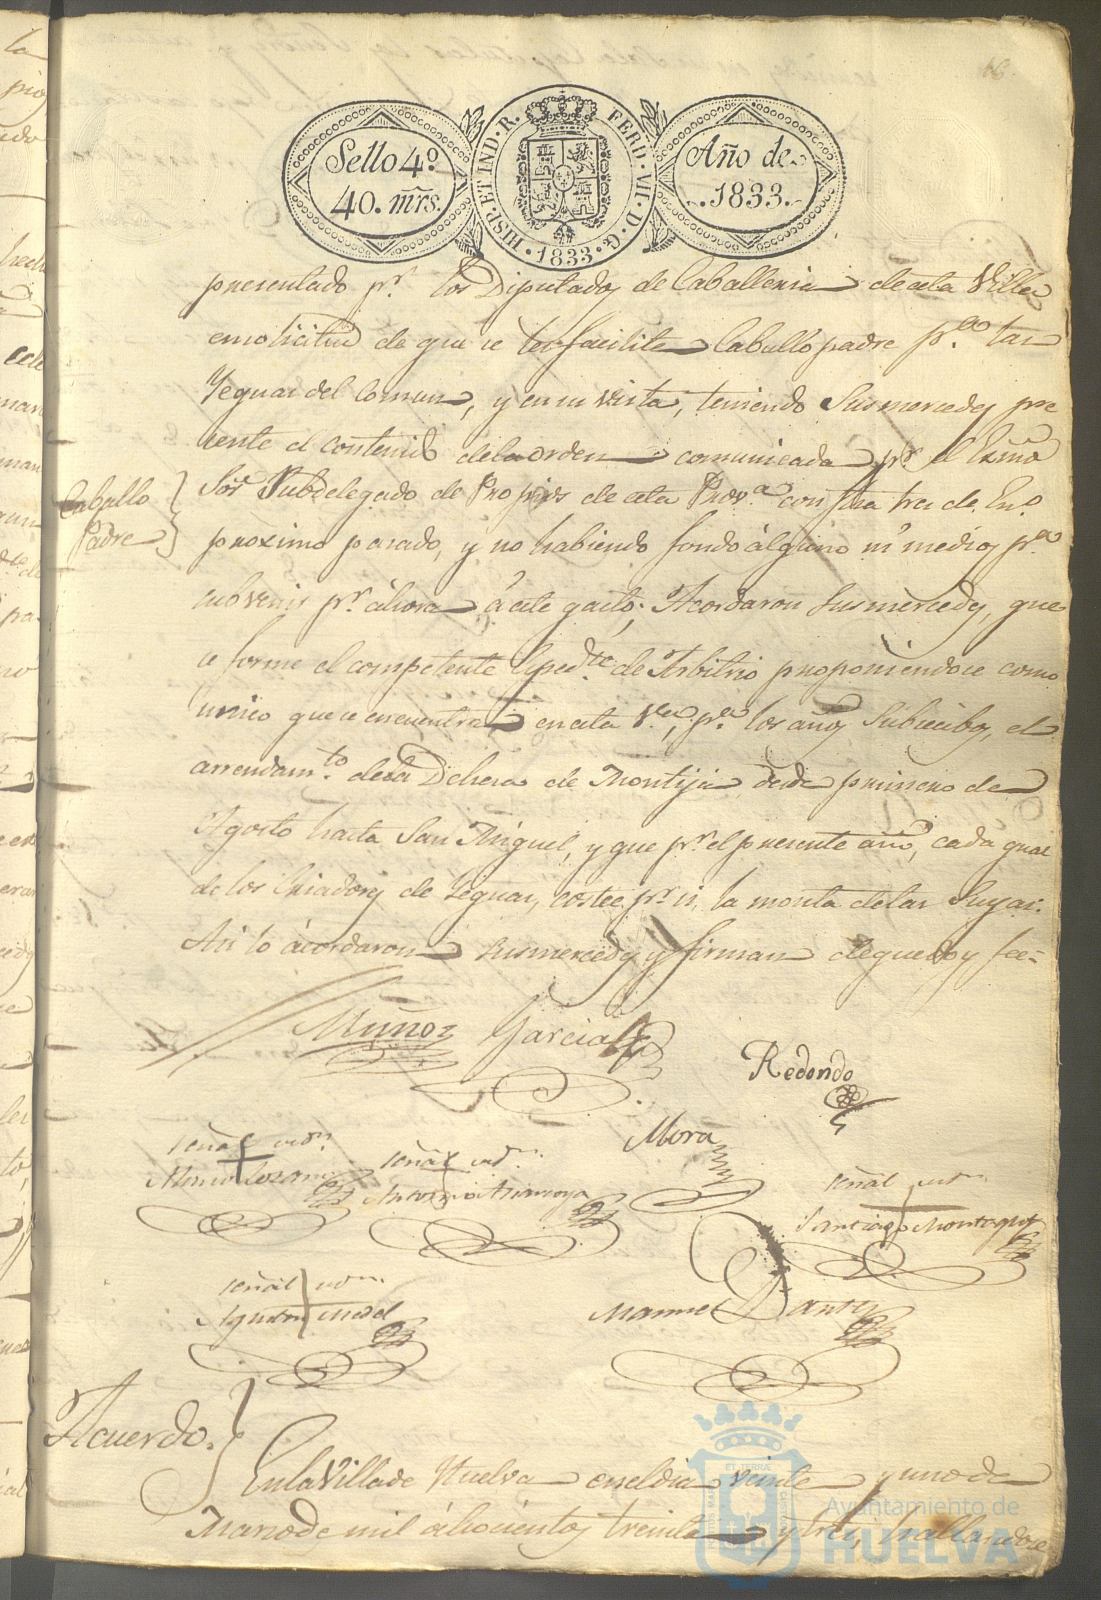 Sello 4º
40. mrs.
HISP. ET IND. R. FERD. VII. D. G.
1833
Año de
1833.
presentado pr. los Diputados de Caballeria de esta Villa
en solicitud de que se les facilite Caballo padre pa. las
Yeguas del Comun, y en su vista, teniendo Sus mercedes pre
sente el contenido de la orden comunicada pr. el Exmo
Sor. Subdelegado de Propios de esta Prova. con fha tres de En.o
proximo pasado, y no habiendo fondo alguno ni medios pa.
subvenir pr. ahora á este gasto; Acordaron Sus mercedes, que
se forme el competente Espedte. de Arbitrio proponiendose como
unico que se encuentra en esta Va. pa. los años Subcesibos, el
arrendamto. de la Dehesa de Montija desde primero de
Agosto hasta San Miguel, y que pr. el presente año, cada qual
de los Criadores de Yeguas, costee pr. si, la monta de las Suyas.
Asi lo acordaron Sus mercedes y firman de que doy fee=
Caballo
Padre
Muñoz Garcia
Redondo
Mora
señal
Lozano
señal
Antonio
señal
Santiago
señal
Agustin
Manuel
Acuerdo.
En la Villa de Huelva en el dia veinte y uno de
Marzo de mil ochocientos treinta y tres, hallandose
Ayuntamiento de
HUELVA